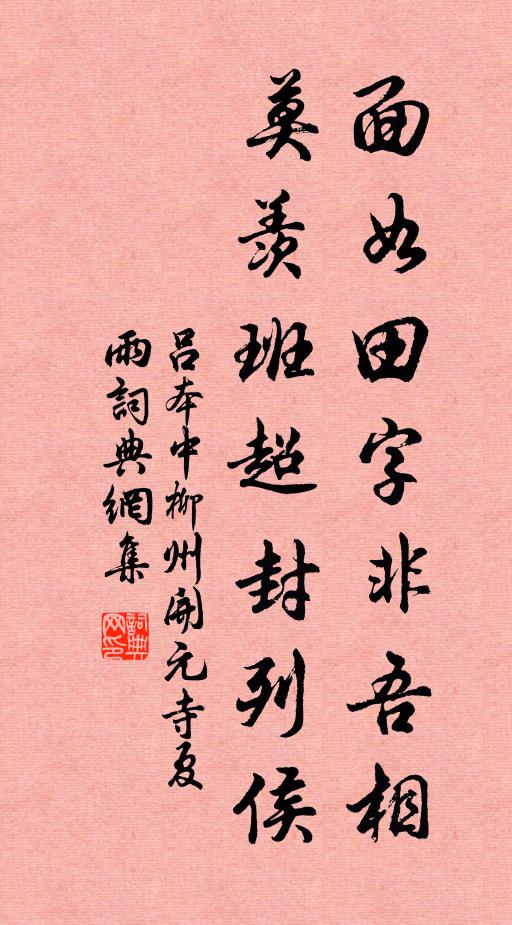 面如田字非吾相
莫羨班超封列侯
吕本中柳州開元寺夏
雨詞典網集
詞典
网印